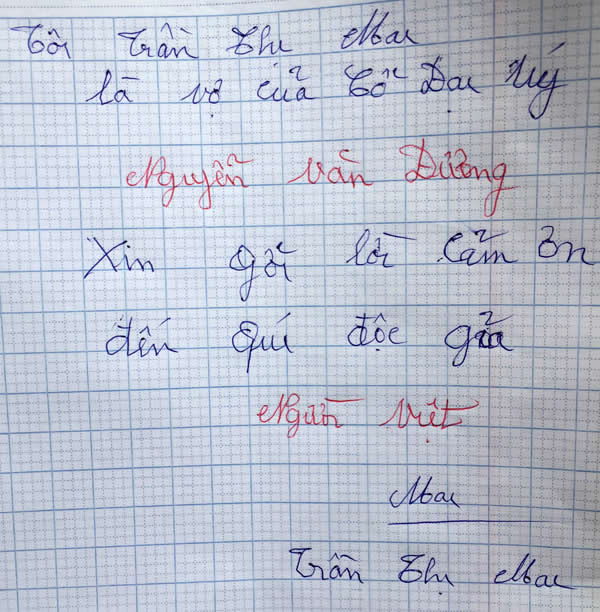 Tôi Trần Thị Mai
là vợ của Cố Đại Uý
Nguyễn Văn Dương
Xin gởi lời cảm ơn
đến quí độc giả
Người Việt
Mai
Trần Thị Mai